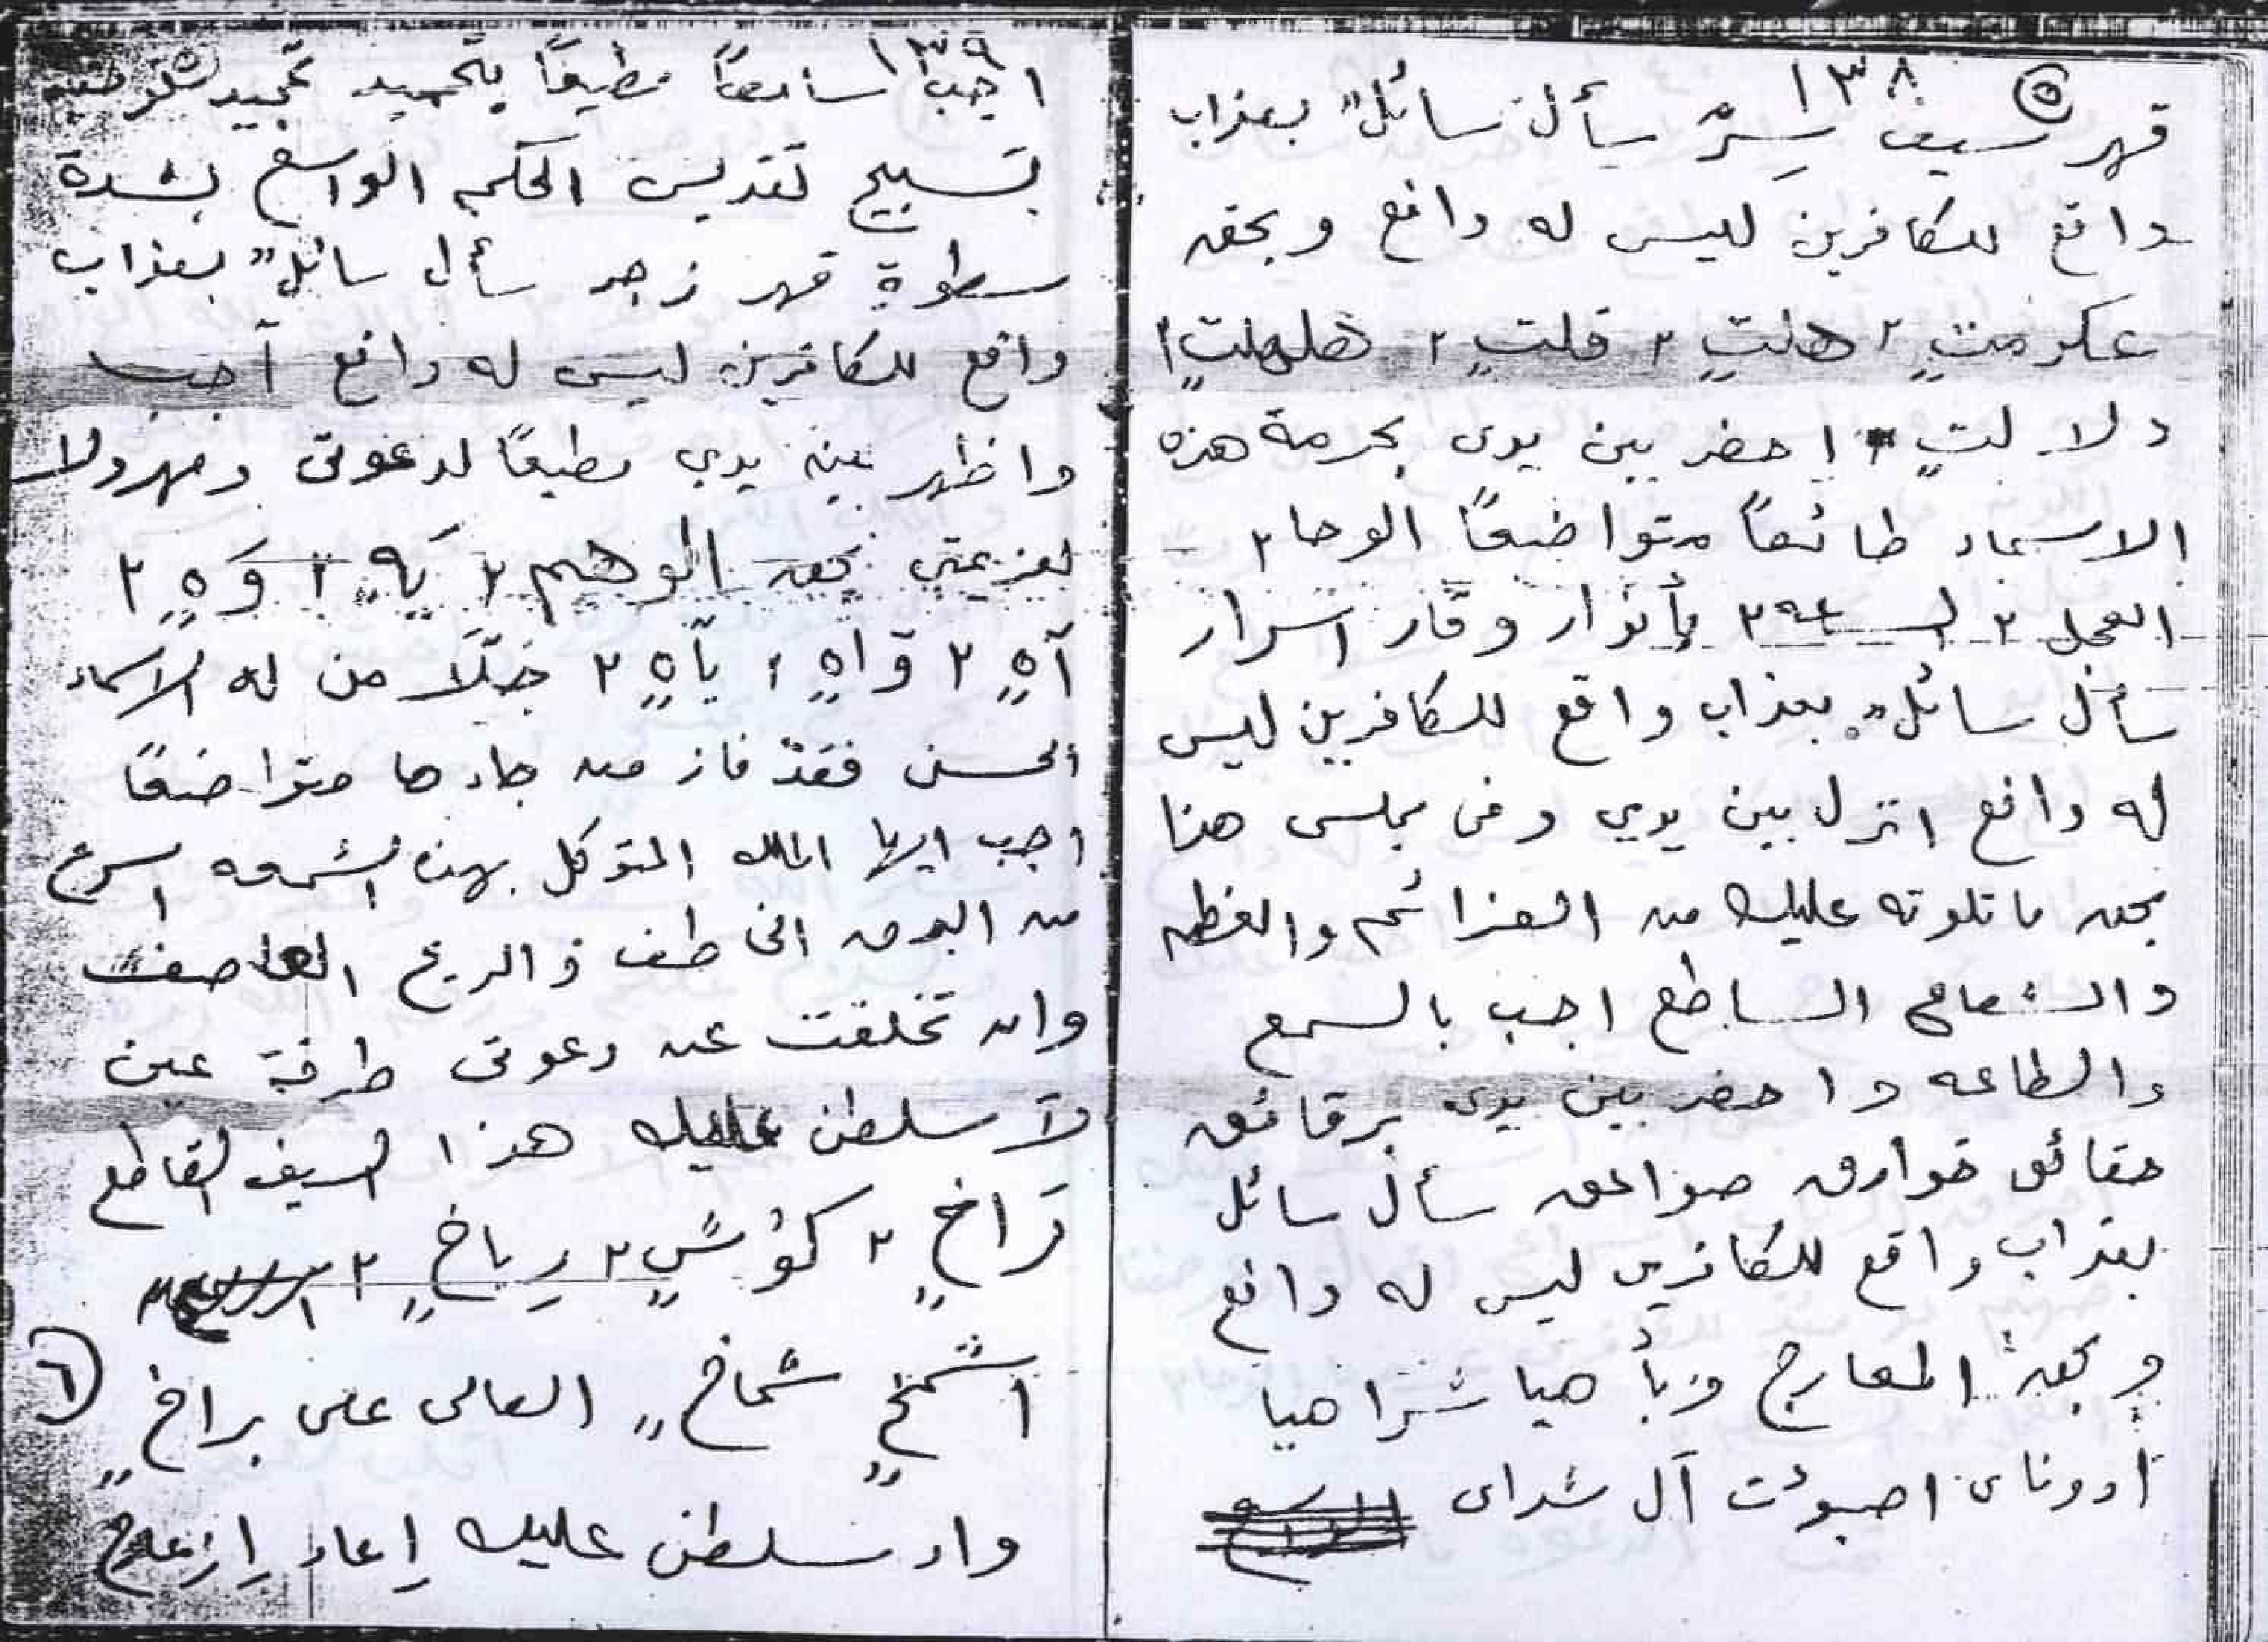 ١٣٨ ٥
قهر سيف سِرّ سأل سائلٌ بعذاب
واقع للكافرين ليس له دافع وبحق
عكرمتٍ ٢ هلتٍ ٢ قلتٍ ٢ هلهلتٍ ٢
دلا لتٍ احضر بين يدى بحرمة هذه
الاسماء طائعاً متواضعاً الوحا ٢
العجل ٢ الساعه ٢ بأنوار وقار اسرار
سأل سائلٌ بعذاب واقع للكافرين ليس
له دافع انزل بين يدي وفى مجلسى هنا
بحق ما تلوته عليك من العزائم والعظم
والشعاع الساطع اجب بالسمع
والطاعه واحضر بين يدى برقائق
حقائق خوارق صواعق سأل سائل
بعذاب واقع للكافرين ليس له دافع
وبحق المعارج وبأهيا شراهيا
أدوناى اصبؤت آل شداى
١٣٩
اجب سامعاً مطيعاً بتحميد تمجيد
بتسبيح تقديس الحكم الواسع بشدة
سطوة قهر زجر سأل سائلٌ بعذاب
واقع للكافرين ليس له دافع أجب
واظهر بين يدي مطيعاً لدعوتى ومهرولا
لعزيمتى بحق الوهيم ٢ يَهٍ ٢ وَهٍ ٢
آهٍ ٢ وَاهٍ ٢ يَاهٍ ٢ من له الاسماء
الحسنى فقدْ فاز من جاءها متواضعاً
اجب ايها الملك المتوكل بهذه الشمعه اسرع
من البرق الخاطف والريح العاصف
وان تخلفت عن دعوتى طرفة عين
لأسلطن عليك هذا السيف القاطع
كؤشٍ ٢ رِياخٍ ٢
اشمخٍ شماخٍ العالى على براخٍ ٦
واسلطن عليك